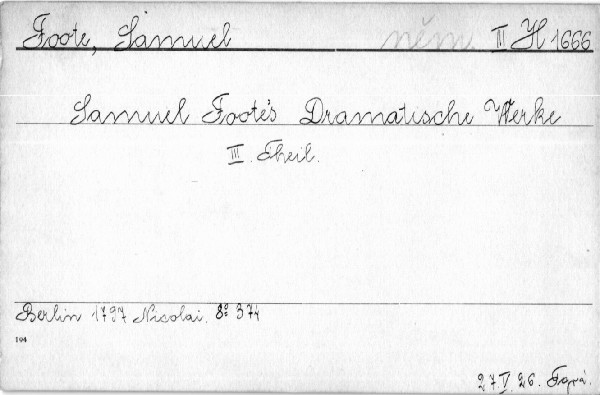 Foote, Samuel něm. III H 1666
Samuel Foote's Dramatische Werke
III. Theil.
Berlin 1797 Nicolai. 8º 374
194
27.V.26.